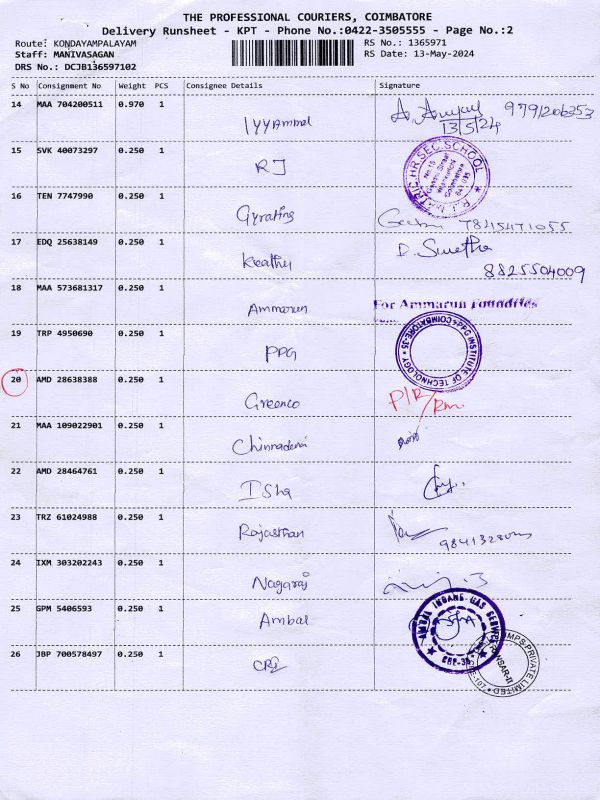 THE PROFESSIONAL COURIERS, COIMBATORE
Delivery Runsheet - KPT - Phone No.:0422-3505555 - Page No.:2
Route: KONDAYAMPALAYAM RS No.: 1365971
Staff: MANIVASAGAN RS Date: 13-May-2024
DRS No.: DCJB136597102
S No Consignment No Weight PCS Consignee Details Signature
14 MAA 704200511 0.970 1 Iyyambal 979/206253
13/5/24
15 SVK 40073297 0.250 1 RJ
R.J. MATRIC.HR.SEC.SCHOOL
16 TEN 7747990 0.250 1 Gyrating Geetha 7845471055
17 EDQ 25638149 0.250 1 Keathy D. Swetha
8825504009
18 MAA 573681317 0.250 1 Ammarun For Ammarun Foundries
19 TRP 4950690 0.250 1 PPG PPG INSTITUTE OF TECHNOLOGY COIMBATORE-35
20 AMD 28638388 0.250 1 Greenco P/R/Rm
21 MAA 109022901 0.250 1 Chinnadevi
22 AMD 28464761 0.250 1 Isha
23 TRZ 61024988 0.250 1 Rajasthan
24 IXM 303202243 0.250 1 Nagaraj
25 GPM 5406593 0.250 1 Ambal AMBAL INDANE GAS SERVICE
CBE-35
26 JBP 700578497 0.250 1 CRI
PRIVATE LIMITED